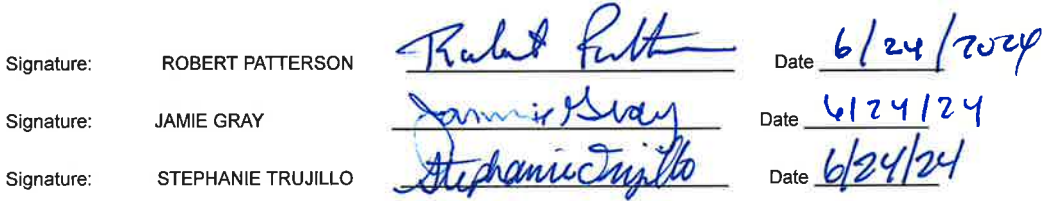 Signature: ROBERT PATTERSON Robert Patt Date 6/24/2024
Signature: JAMIE GRAY Jammie Gray Date 6/24/24
Signature: STEPHANIE TRUJILLO Stephanie Trujillo Date 6/24/24